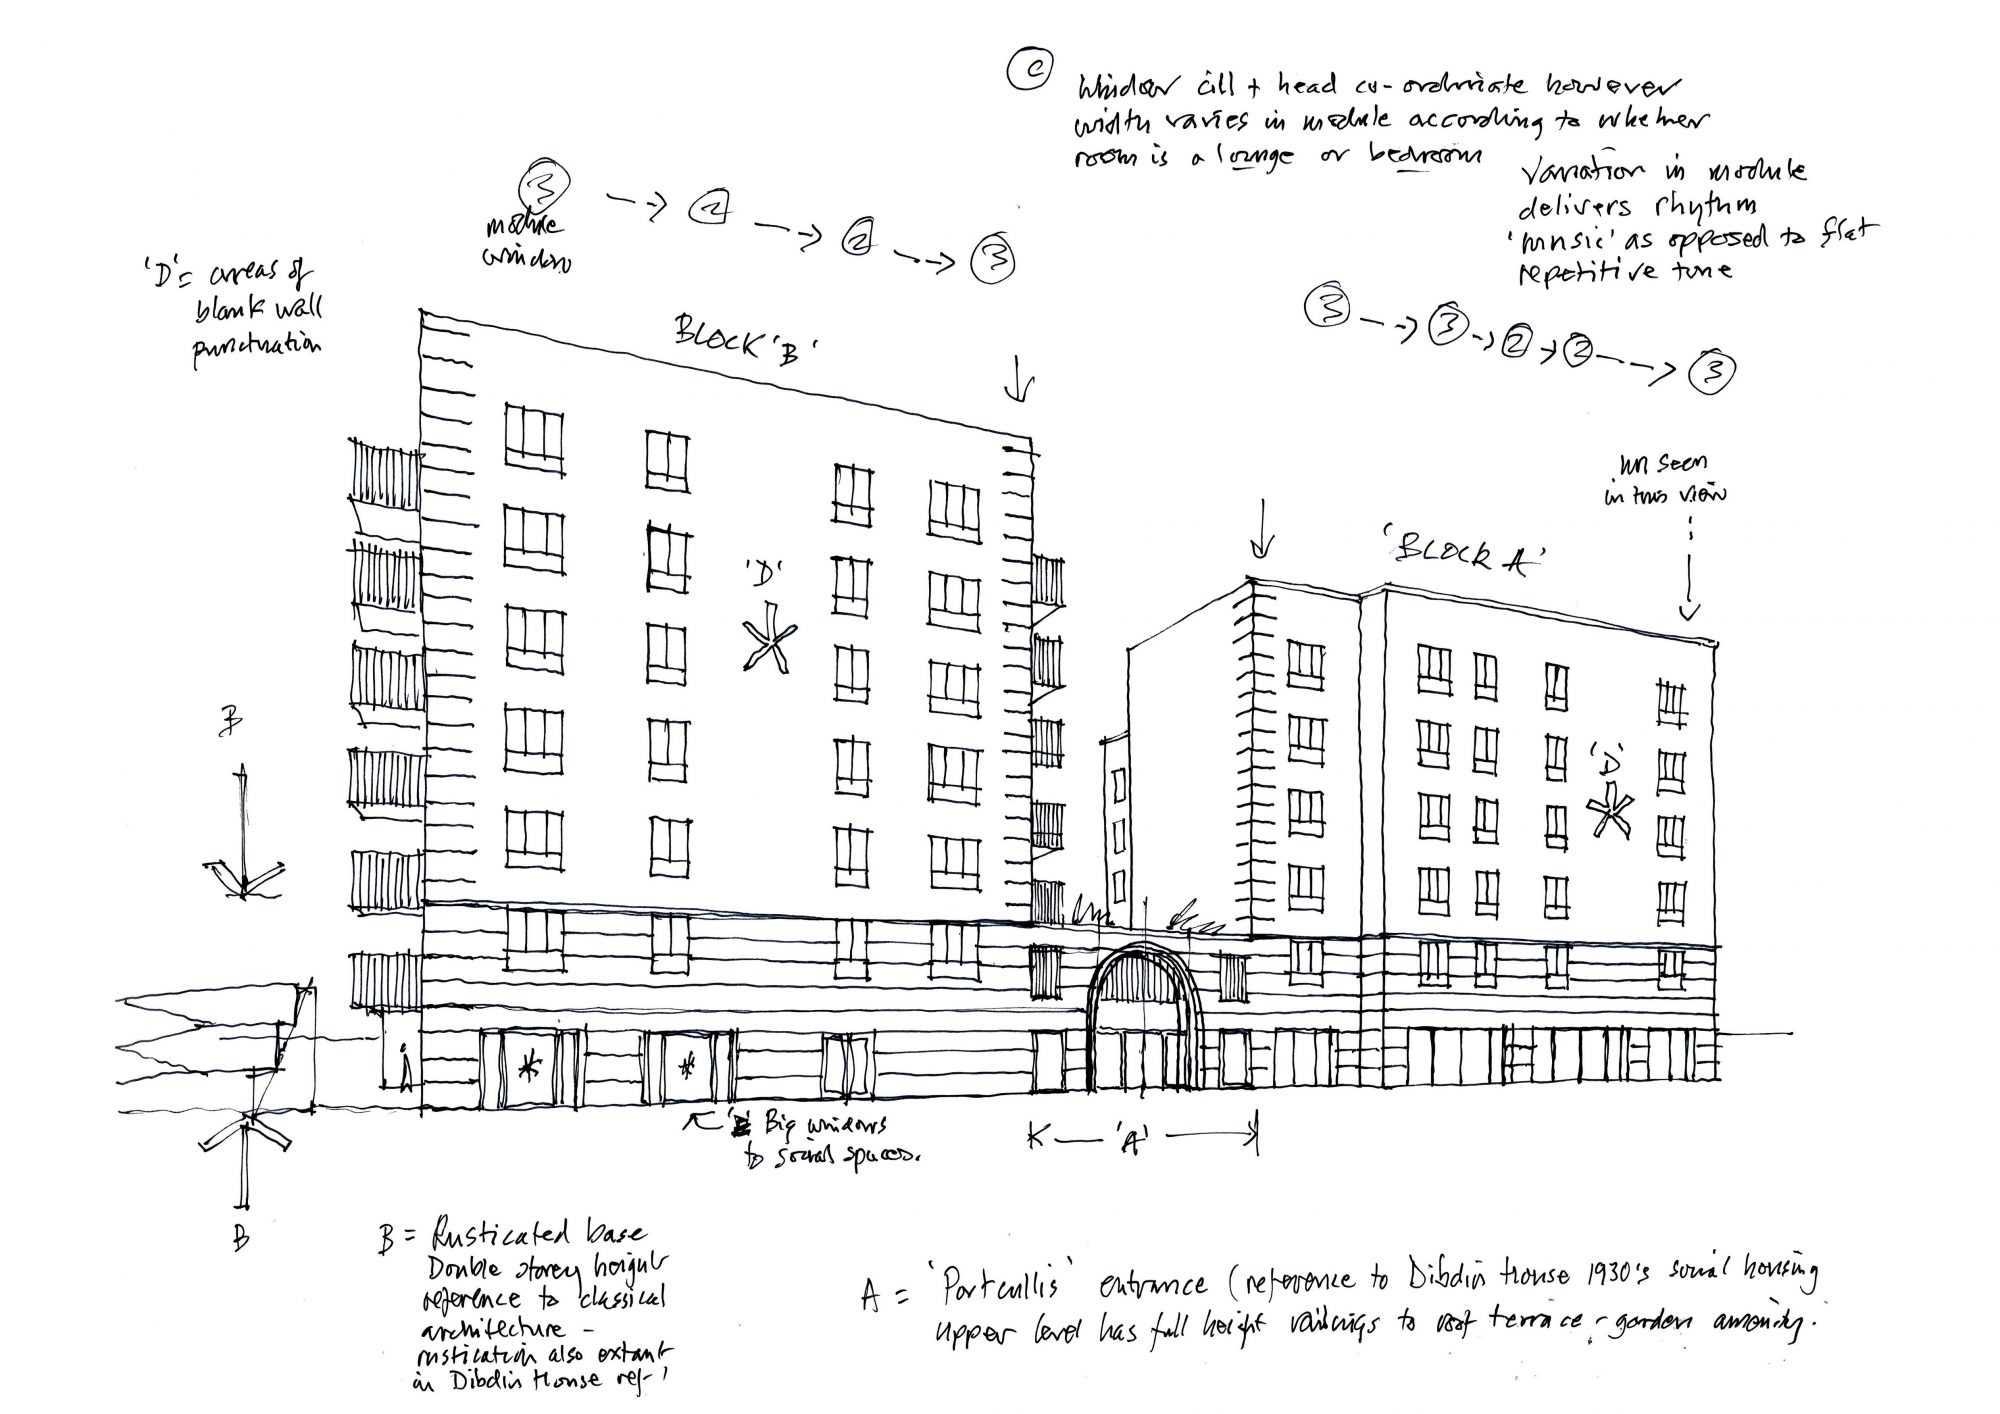 C
Window cill + head co-ordinate however
width varies in module according to whether
room is a lounge or bedroom
Variation in module
delivers rhythm
'music' as opposed to flat
repetitive tune
3 2 2 3
module
window
'D' = areas of
blank wall
punctuation
BLOCK 'B'
3 3 2 2 3
un seen
in this view
'BLOCK A'
'D'
'D'
B
B
Big windows
to social spaces.
'A'
B = Rusticated base
Double storey height
reference to classical
architecture -
rustication also extant
in Dibdin House ref-'
A = 'Portcullis' entrance (reference to Dibdin House 1930's social housing
upper level has full height railings to roof terrace - garden amenity.